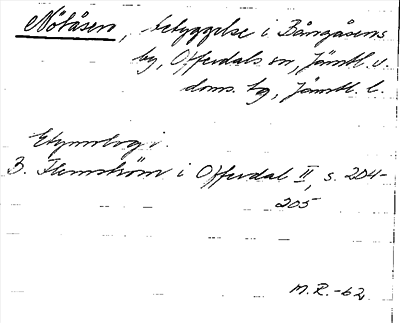 Nötåsen, bebyggelse i Bångåsens
by, Offerdals sn, Jämtl. v.
doms. tg, Jämtl. l.
Etymologi.
B. Flemström i Offerdal II, s. 204-
205
M.R.-62